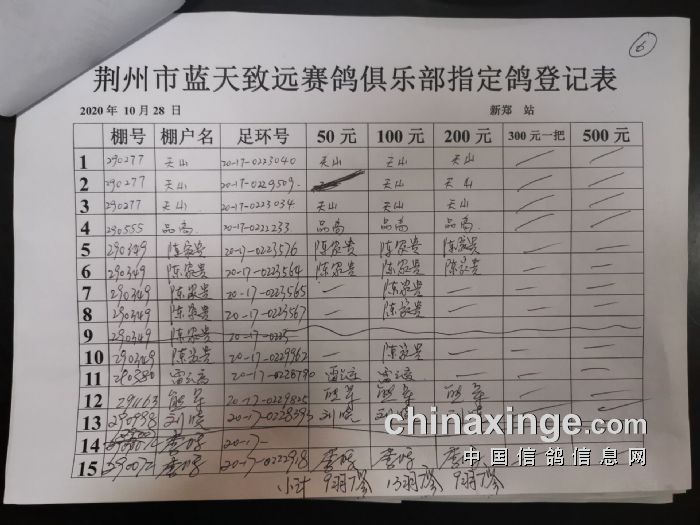 6
荆州市蓝天致远赛鸽俱乐部指定鸽登记表
2020 年 10 月 28 日 新郑 站
棚号 棚户名 足环号 50 元 100 元 200 元 300 元一把 500 元
1 290277 天山 20-17-0223040 天山 天山 天山
2 290277 天山 20-17-0229509 天山 天山
3 290277 天山 20-17-0223034 天山 天山 天山
4 290555 品高 20-17-0221233 品高 品高 品高
5 290349 陈家贵 20-17-0223576 陈家贵 陈家贵 陈家贵
6 290349 陈家贵 20-17-0223564 陈家贵 陈家贵 陈家贵
7 290349 陈家贵 20-17-0223565 — 陈家贵 —
8 290349 陈家贵 20-17-0223567 — 陈家贵 —
9 290349 陈家贵 20-17-0223
10 290349 陈家贵 20-17-0229962 — 陈家贵 —
11 290380
12 291163 熊军 20-17-0229825 熊军 熊军 熊军
13 290798 刘嫔
14 20-17-
15 290072
小计 9羽 13羽 9羽
chinaxinge.com
中国信鸽信息网